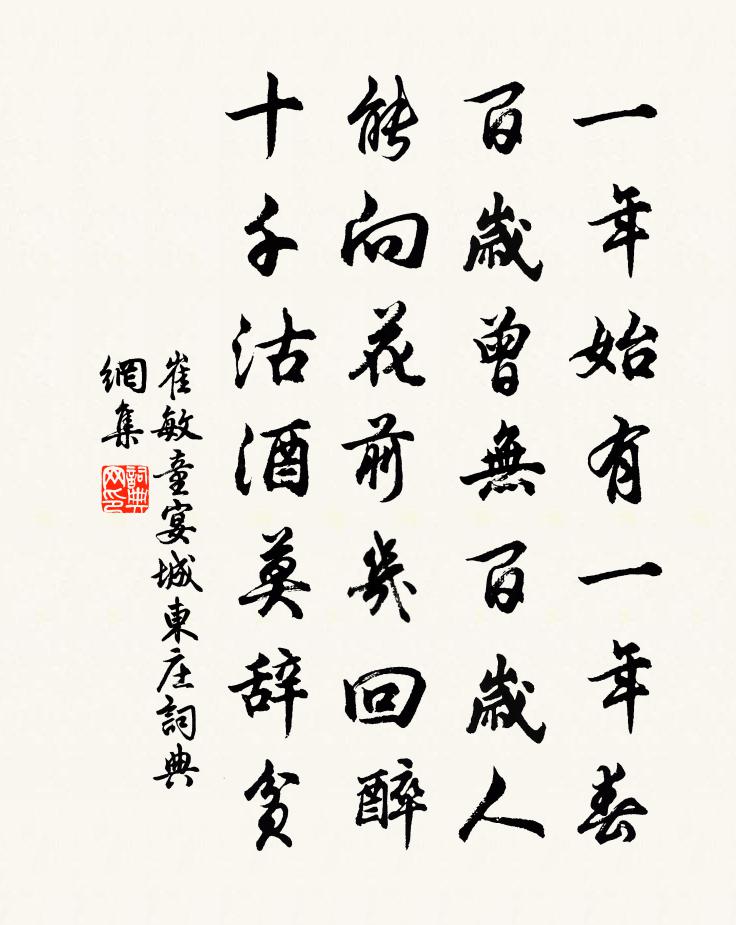 一年始有一年春
百歲曾無百歲人
能向花前幾回醉
十千沽酒莫辭貧
崔敏童宴城東庄詞典
網集
詞典網印